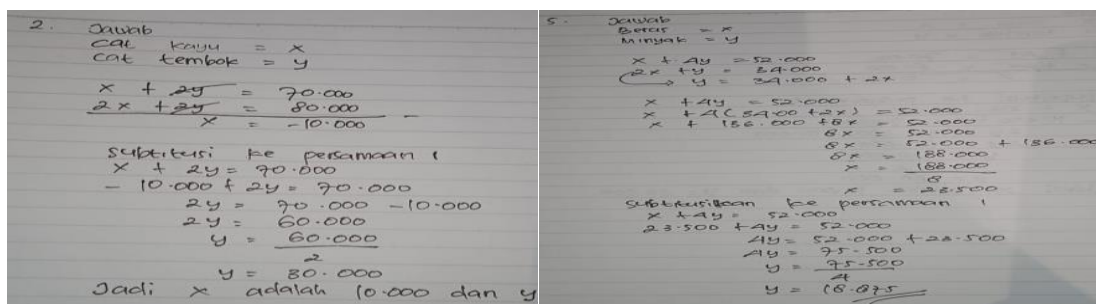 2. Jawab
Cat kayu = x
Cat tembok = y
x + 2y = 70.000
2x + 2y = 80.000 -
x = -10.000
Subtitusi ke persamaan 1
x + 2y = 70.000
- 10.000 + 2y = 70.000
2y = 70.000 - 10.000
2y = 60.000
y = 60.000
2
y = 30.000
Jadi x adalah 10.000 dan y
5. Jawab
Beras = x
Minyak = y
x + 4y = 52.000
2x + y = 34.000
y = 34.000 + 2x
x + 4y = 52.000
x + 4(34.00 + 2x) = 52.000
x + 136.000 + 8x = 52.000
8x = 52.000
8x = 52.000 + 136.000
8x = 188.000
x = 188.000
8
x = 23.500
Subtitusikan ke persamaan 1
x + 4y = 52.000
23.500 + 4y = 52.000
4y = 52.000 + 23.500
4y = 75.500
y = 75.500
4
y = 18.875